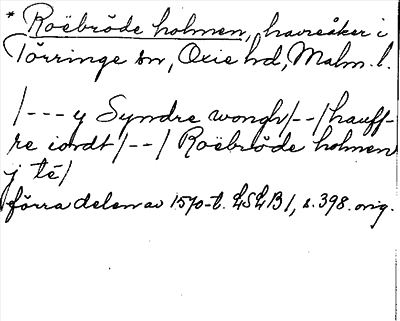 * Roëbröde holmen, havreåker i
Törringe sn, Oxie hd, Malm. l.
/--- y Syndre wongh/--/hauff-
re iordt/--/ Roëbröde holmen
y té/
förra delen av 1570-t. LSLB1, s. 398. orig.